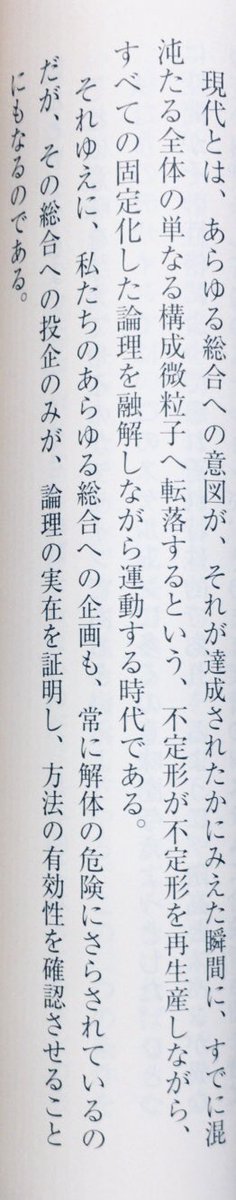 現代とは、あらゆる総合への意図が、それが達成されたかにみえた瞬間に、すでに混
沌たる全体の単なる構成微粒子へ転落するという、不定形が不定形を再生産しながら、
すべての固定化した論理を融解しながら運動する時代である。
それゆえに、私たちのあらゆる総合への企画も、常に解体の危険にさらされているの
だが、その総合への投企のみが、論理の実在を証明し、方法の有効性を確認させること
にもなるのである。